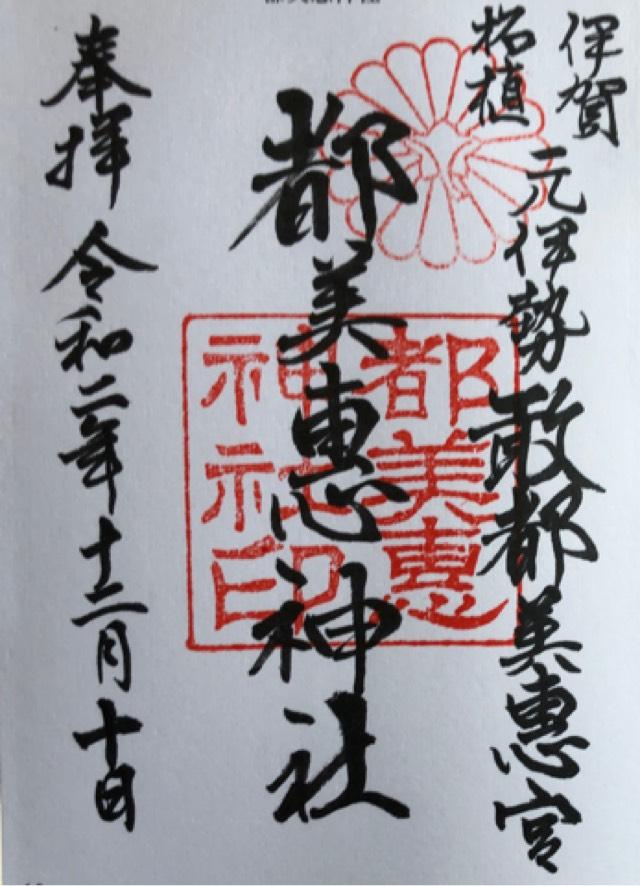 伊賀
柘植
元伊勢敢都美恵宮
都美恵神社
都美恵
神社印
奉拝
令和二年十二月十日